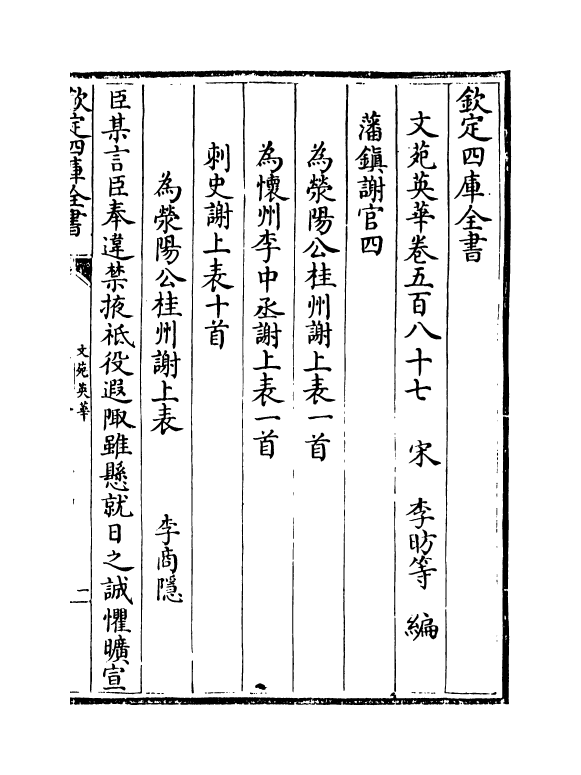 欽定四庫全書
文苑英華卷五百八十七　宋　李昉等　編
藩鎮謝官四
為滎陽公桂州謝上表一首
為懷州李中丞謝上表一首
刺史謝上表十首
為滎陽公桂州謝上表　李商隱
臣某言臣奉違禁掖祗役遐陬雖懸就日之誠懼曠宣
欽定四庫全書
文苑英華